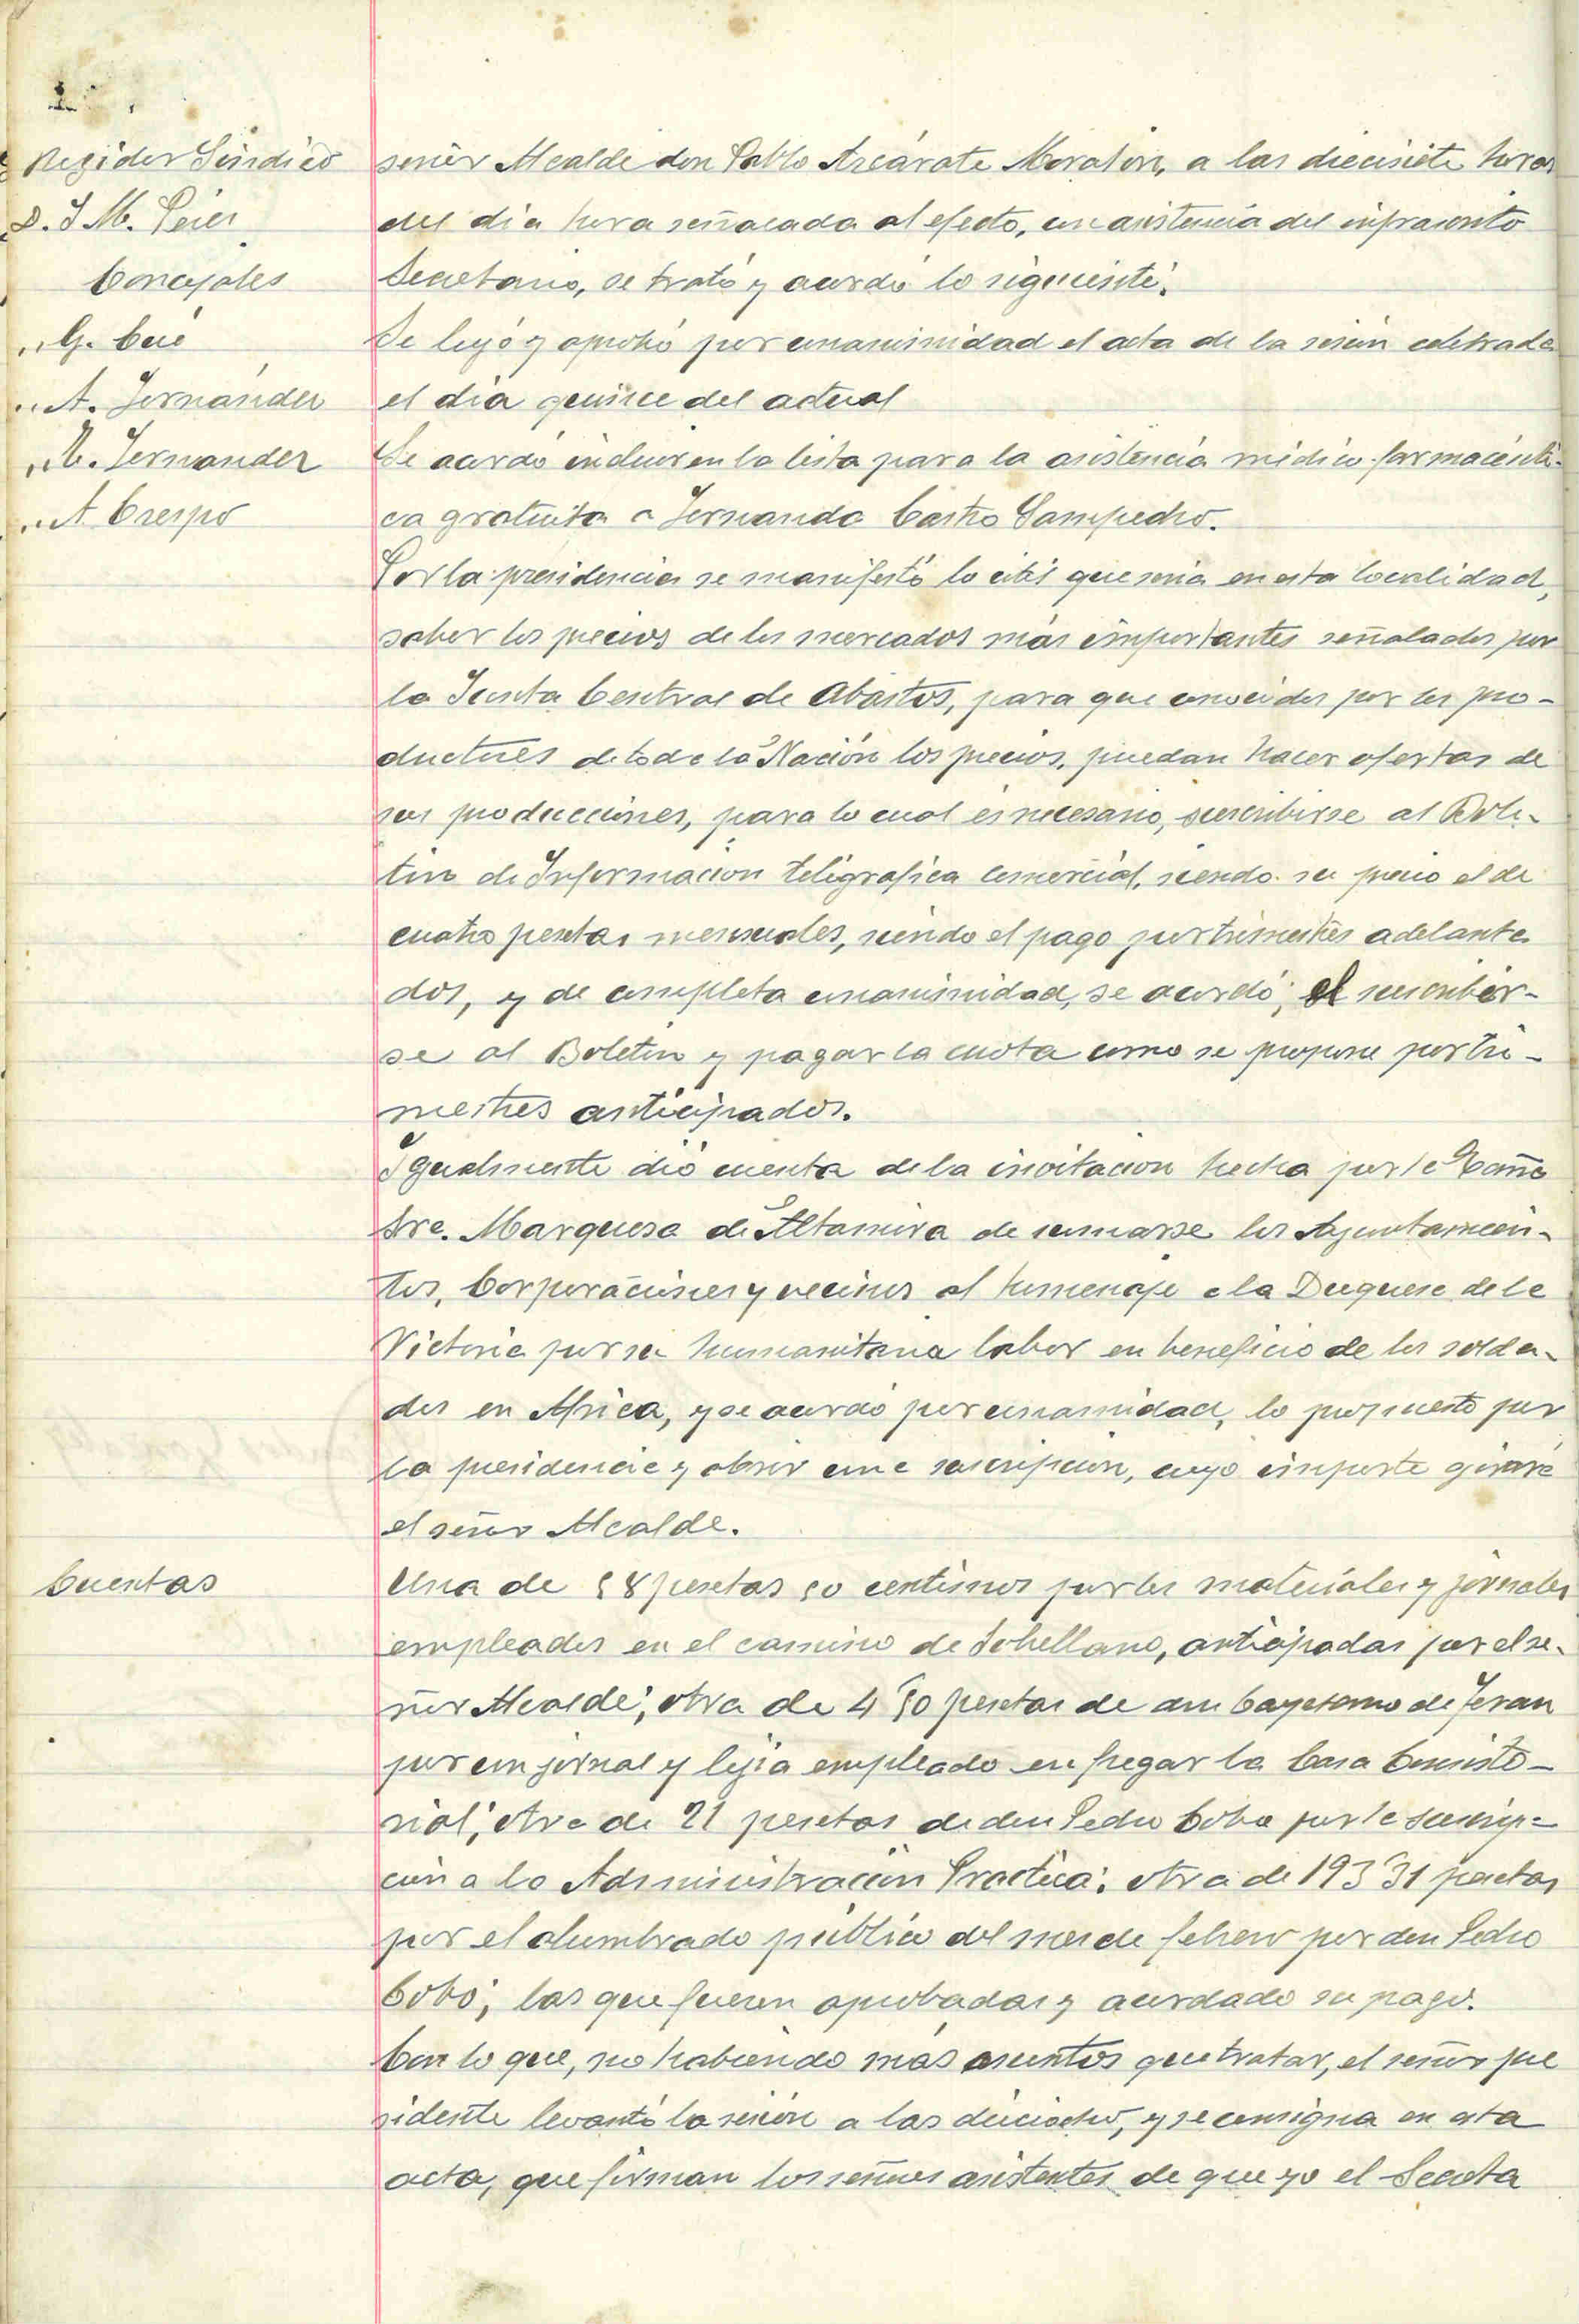 Regidor Síndico
D. J M. Peier
Concejales
" G. Cué
" A. Fernández
" M. Fernández
" A. Crespo
señor Alcalde don Pablo Azcárate Moratón, a las diecisiete horas
del dia hora señalada al efecto, con asistencia del infrascrito
Secretario, se trató y acordó lo siguiente:
Se leyó y aprobó por unanimidad el acta de la sesión celebrada
el dia quince del actual
Se acordó incluir en la lista para la asistencia médico-farmacéuti-
ca gratuita a Fernando Castro Sampedro.
Por la presidencia se manifestó lo útil que seria en esta localidad,
saber los precios de los mercados más importantes señalados por
la Junta Central de Abastos, para que conocidos por los pro-
ductores de toda la Nación los precios, puedan hacer ofertas de
sus producciones, para lo cual es necesario, suscribirse al Bole-
tin de Informacion telégrafica comercial, siendo su precio el de
cuatro pesetas mensuales, siendo el pago por trimestres adelanta
dos, y de completa unanimidad, se acordó; el suscribir-
se al Boletin y pagar la cuota como se propone por tri-
mestres anticipados.
Igualmente dió cuenta de la invitacion hecha por la Excma
Sra. Marquesa de Altamira de sumarse los Ayuntamien-
tos, Corporaciones y vecinos al homenaje a la Duquesa de la
Victoria por su humanitaria labor en beneficio de los solda-
dos en Africa, y se acordó por unanimidad, lo propuesto por
la presidencia y abrir una suscripcion, cuyo importe girará
el señor Alcalde.
Cuentas
Una de 58 pesetas 50 centimos por los materiales y jornales
empleados en el camino de Sobellano, anticipadas por el se-
ñor Alcalde; otra de 4 50 pesetas de Cayetano de Teran
por un jornal y lejia empleado en fregar la Casa Consisto-
rial; otra de 21 pesetas de don Pedro Cobo por la suscrip-
cion a la Administración Practica; otra de 193 31 pesetas
por el alumbrado público del mes de febrero por don Pedro
Cobo; las que fueron aprobadas y acordado su pago.
Con lo que, no habiendo más asuntos que tratar, el señor pre
sidente levantó la sesión a las dieciocho, y se consigna en esta
acta, que firman los señores asistentes de que yo el Secreta